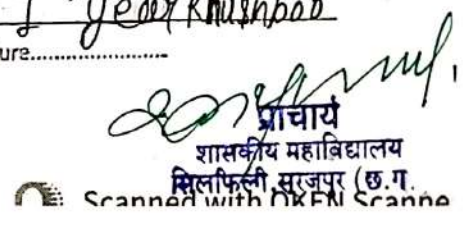 I year Khushboo
ure....................
प्राचार्य
शासकीय महाविद्यालय
सिलफिली, सूरजपुर (छ.ग.
Scanned with OKEN Scanne